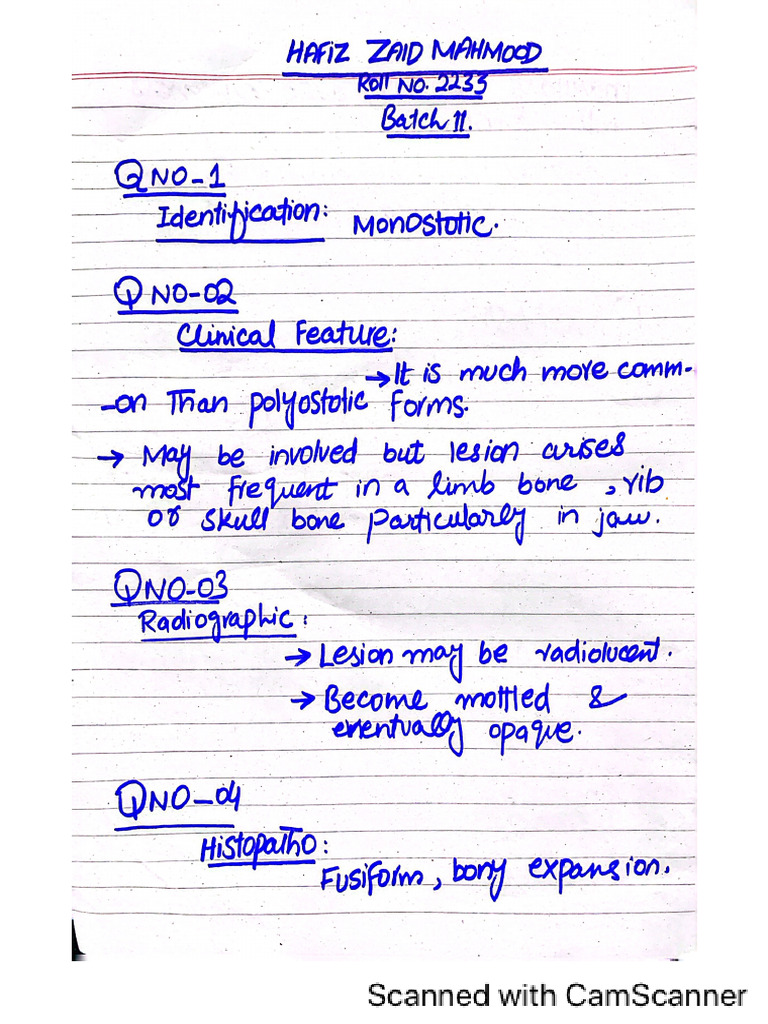 HAFiZ ZAID MAHMOOD
Roll NO. 2233
Batch 11.
Q NO-1
Identification: MonOstotic.
Q NO-02
Clinical Feature:
→ It is much more comm-
-on Than polyostotic forms.
→ May be involved but lesion arises
most frequent in a limb bone , rib
or skull bone particularly in jaw.
QNO-03
Radiographic :
→ Lesion may be radiolucent.
→ Become mottled &
eventually opaque.
QNO-04
Histopatho :
Fusiform, bony expansion.
Scanned with CamScanner